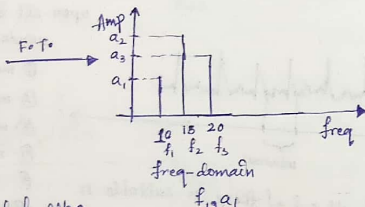 Amp
a₂
F.T.
a₃
a₁
10 15 20
f₁ f₂ f₃
freq
freq-domain
f₁, a₁